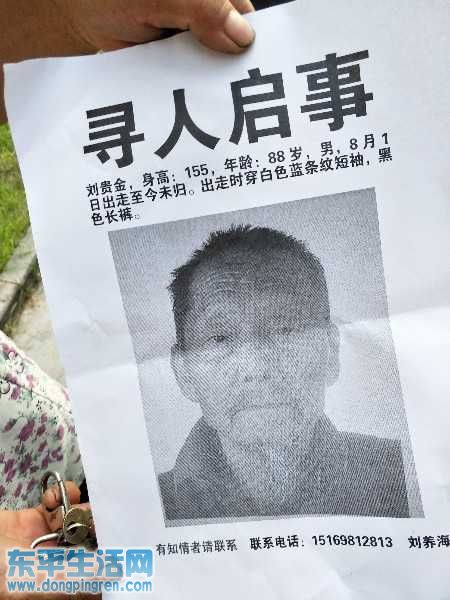 寻人启事
刘贵金，身高：155，年龄：88岁，男，8月1
日出走至今未归。出走时穿白色蓝条纹短袖，黑
色长裤。
有知情者请联系 联系电话：15169812813 刘养海
东平生活网
www.dongpingren.com